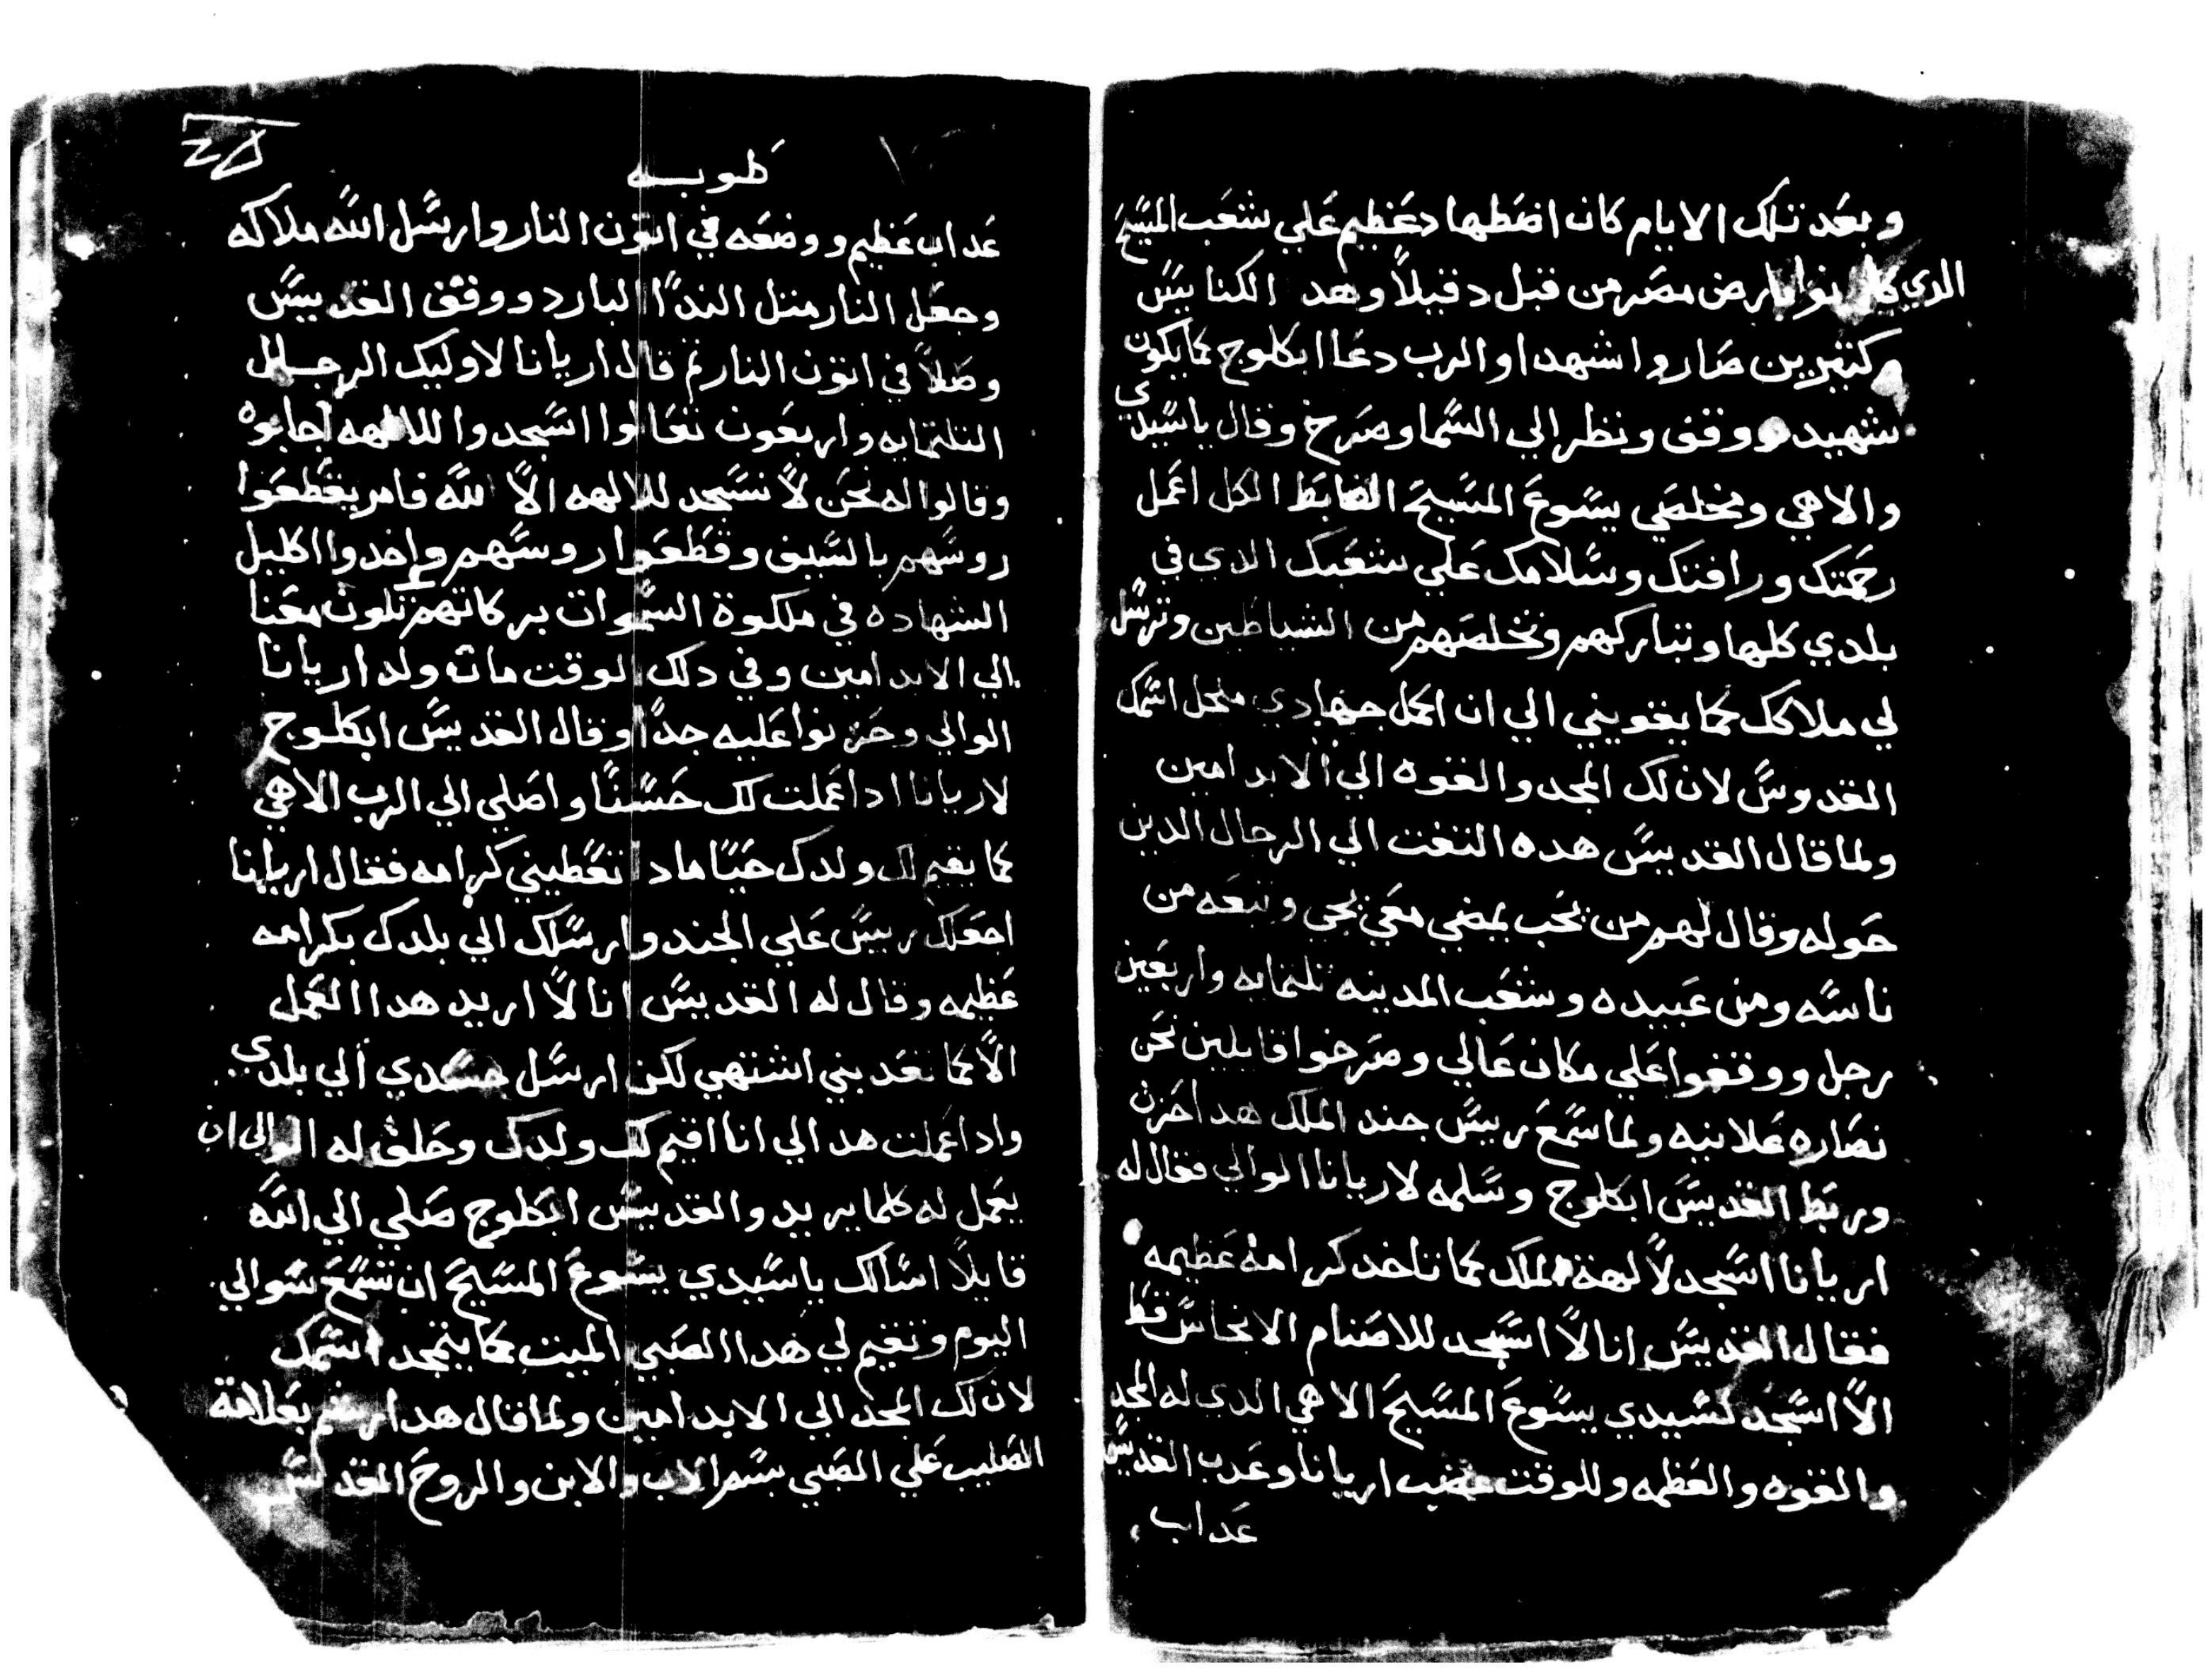 وبعد تلك الايام كان اضطهاد عظيم علي شعب المسيح
الدي كانوا بارض مصر من قبل دقيلاً وهد الكنايس
وكتيرين صاروا شهدا والرب دعا ابكلوج كما يكون
شهيد ووقف ونظر الي السما وصرخ وقال ياسيدي
والاهي ومخلصي يسوع المسيح الضابط الكل اعمل
رحمتك ورافتك وسلامك علي شعبك الدي في
بلدي كلها وتباركهم وتخلصهم من الشياطين وترسل
لي ملاكك كما يقويني الي ان اكمل جهادي منجل اسمك
القدوس لان لك المجد والقوه الي الابد امين
ولما قال القديس هده التفت الي الرجال الدين
حوله وقال لهم من يحب يمضي معي يجي وتبعه من
ناسه ومن عبيده وشعب المدينه تلتمايه واربعين
رجل ووقفوا علي مكان عالي وصرخوا قايلين نحن
نصاره علانيه ولما سمع رييس جند الملك هدا حزن
وربط القديس ابكلوج وسلمه لاريانا الوالي فقال له
اريانا اسجد لالهة الملك كما تاخد كرامة عظيمه
فقال القديس انا لا اسجد للاصنام الانجاس قط
الا اسجد لسيدي يسوع المسيح الاهي الدي له المجد
والقوه والعظمه وللوقت غضب اريانا وعدب القديس
عداب
طوبه
عداب عظيم ووضعه في اتون النار وارسل الله ملاكه
وجعل النار متل الندا البارد ووقف القديس
وصلا في اتون النار تم قال اريانا لاوليك الرجال
التلتمايه واربعون تعالوا اسجدوا للالهه اجابوه
وقالوا له نحن لا نسجد للالهه الا الله فامر يقطعوا
روسهم بالسيف وقطعوا روسهم واخدوا اكليل
الشهاده في ملكوة السموات بركاتهم تكون معنا
الي الابد امين وفي دلك الوقت مات ولد اريانا
الوالي وحزنوا عليه جداً وقال القديس ابكلوج
لاريانا ادا عملت لك حسناً واصلي الي الرب الاهي
كما يقيم لك ولدك حياً مادا تعطيني كرامه فقال اريانا
اجعلك رييس علي الجند وارسلك الي بلدك بكرامه
عظيمه وقال له القديس انا لا اريد هدا العمل
الا كما تعدبني اشتهي لكن ارسل جسدي الي بلدي
وادا عملت هدا لي انا اقيم لك ولدك وحلف له الوالي ان
يعمل له كلما يريد والقديس ابكلوج صلي الي الله
قايلاً اسالك ياسيدي يسوع المسيح ان تسمع سوالي
اليوم وتقيم لي هدا الصبي الميت كما يتمجد اسمك
لان لك المجد الي الابد امين ولما قال هدا رشم بعلامة
الصليب علي الصبي بسم الاب والابن والروح القدس